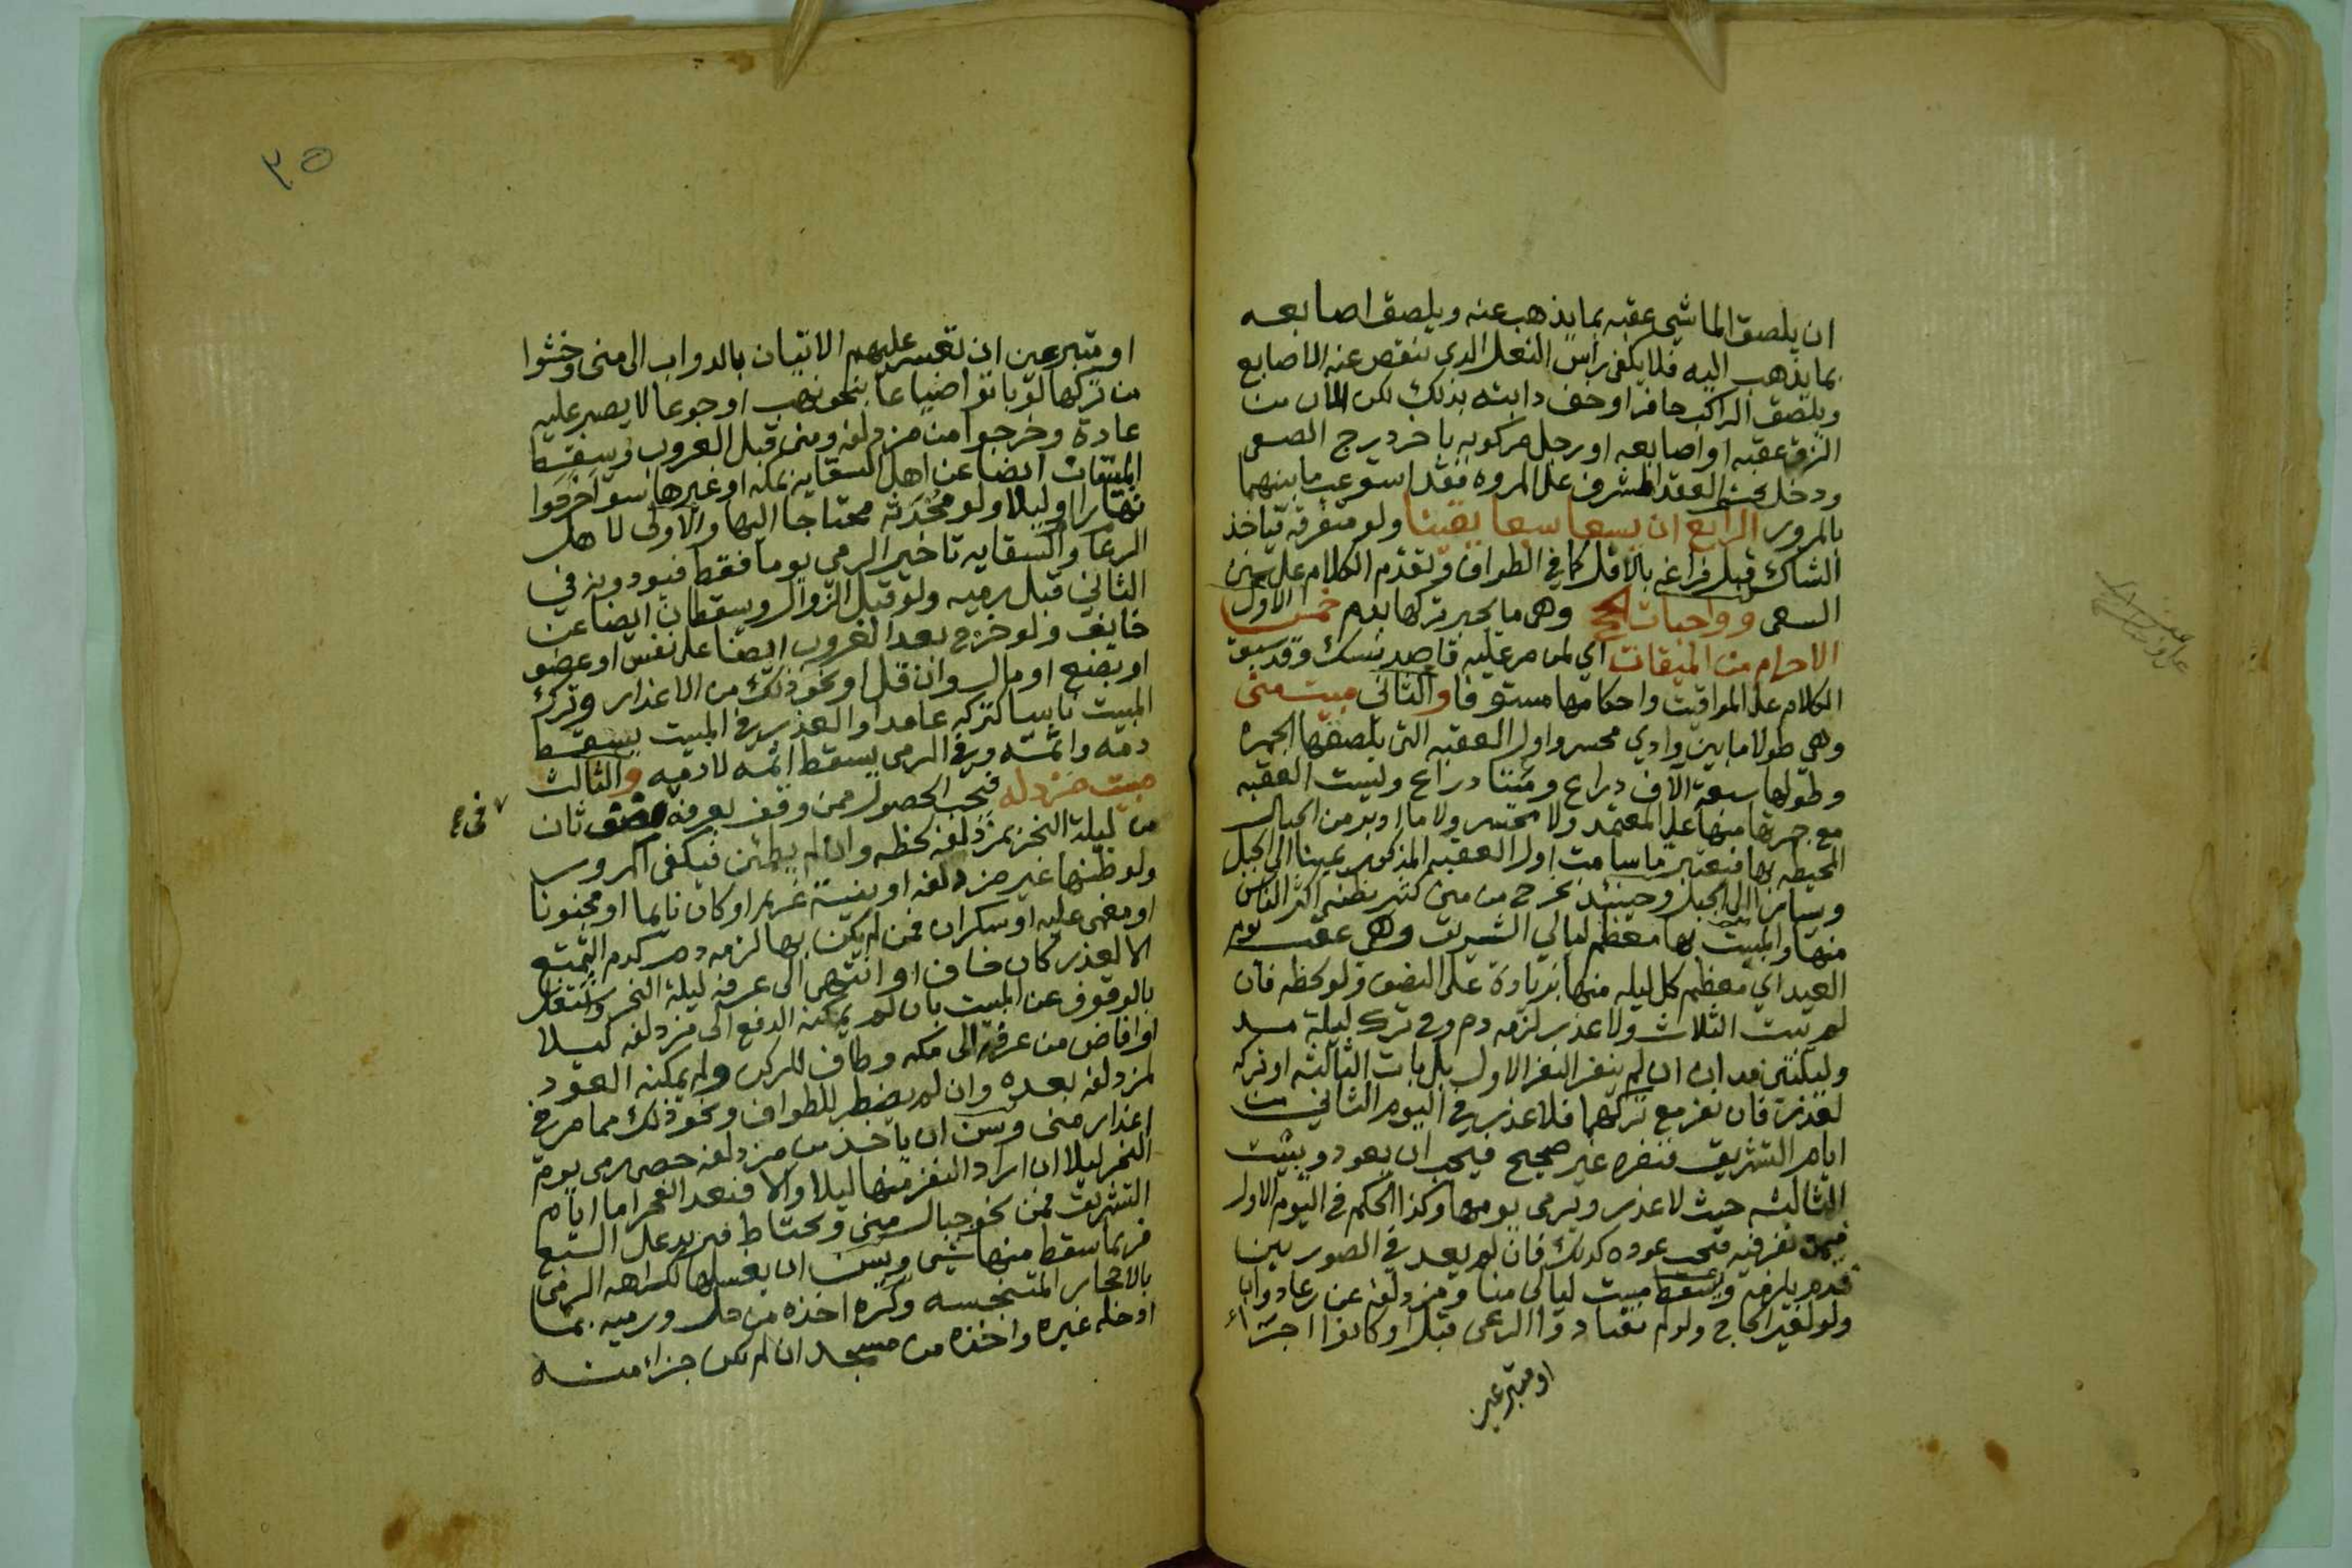 ان يلصق الماشي عقبه بما يذهب عنه ويلصق اصابعه
بما يذهب اليه فلا يكفي راس النعل الدي تنقص عنه الاصابع
ويلصق الراكب حافر او خف دابته بذلك لكن الان من
الزق عقبه او اصابعه او رجل مركوبه باخر درج الصفى
ودخل تحت العقد المشرف على المروه فقد استوعب ما بينهما
بالمرور الرابع ان يسعا سبعا يقينا ولو متفرقه فياخذ
الشاك قبل فراغه بالاقل كما في الطواف وتقدم الكلام على سنن
السعى وواجبات الحج وهي ما يجبر تركها بدم خمس الاول
الاحرام من الميقات اي لمن مر عليه قاصد نسك وقد سبق
الكلام على المواقيت واحكامها مستوفا والثاني مبيت منى
وهي طولا ما بين وادي محسر واول العقبه التى يلصقها الجمره
وطولها سبعة الاف دراع ومئتا دراع وليست العقبه
مع جمرتها منها على المعتمد ولا محسر ولا ما ادبر من الجبال
المحيطه بها فيعتبر ما سامت اول العقبه المذكور يمينا الى الجبل
ويسارا الى الجبل وحينئذ يخرج من منى كثير يظنه اكثر الناس
منها والمبيت بها معظم ليالي التشريق وهي عقب يوم
العيد اي معظم كل ليله منها بزيادة على النصف ولو لحظه فان
لم يبت الثلاث ولا عذر لزمه دم وفي ترك ليلة مد
وليلتين مدان ان لم ينفر النفر الاول بل بات الثالثه او تركه
لعذر فان نفر مع تركهما فلا عذر في اليوم الثاني من
ايام التشريق فنفره غير صحيح فيجب ان يعود ويبيت
الثالثه حيث لا عذر ويرمى يومها وكذا الحكم في اليوم الاول
فيمن نفر فيه فيجب عوده كذلك فان لم يعد في الصورتين
فدم يلزمه ويسقط مبيت ليالي منا ومزدلفه عن رعا دواب
ولو لغير الحاج ولو لم يعتادوا الرعى قبل او كانوا اجراء
او متبرعين
٣٥
او متبرعين ان تعسر عليهم الاتيان بالدواب الى منى وخشوا
من تركها لو باتوا ضياعا بنحو نهب او جوعا لا يصبر عليه
عادة وخرجوا من مزدلفه ومنى قبل الغروب ويسقط
المبيتات ايضا عن اهل السقايه بمكه او غيرها سوا خرجوا
نهارا او ليلا ولو محدثه محتاجا اليها والاولى لاهل
الرعا والسقايه تاخير الرمي يوما فقط فيودونه في
الثاني قبل رميه ولو قبل الزوال ويسقطان ايضا عن
خايف ولو خرج بعد الغروب ايضا على نفس او عضو
او بضع او مال وان قل او نحو ذلك من الاعذار وترك
المبيت ناسيا كتركه عامدا والعذر في المبيت يسقط
دمه واثمه وفي الرمى يسقط اثمه لا دمه والثالث
مبيت مزدلفه فيجب الحصول ممن وقف بعرفه نصف ثان
في
من ليلة النحر بمزدلفه لحظه وان لم يطمئن فيكفى المرور
ولو ظنها غير مزدلفه او بنية غريم او كان نايما او مجنونا
او مغمى عليه او سكران فمن لم يكن بها لزمه دم كدم التمتع
الا لعذر كان خاف او انتهى الى عرفه ليلة النحر واشتغل
بالوقوف عن المبيت بان لم يمكنه الدفع الى مزدلفه ليلا
او افاض من عرفه الى مكه وطاف للركن ولم يمكنه العود
لمزدلفه بعده وان لم يضطر للطواف ونحو ذلك مما مر في
اعذار منى وسن ان ياخذ من مزدلفه حصى رمى يوم
النحر ليلا ان اراد النفر منها ليلا والا فبعد الفجر اما ايام
التشريق فمن نحو جبال منى ويحتاط فيزيد على السبع
فربما سقط منها شي وسن ان يغسلها لكراهه الرمي
بالاحجار المتنجسه وكره اخذه من حل ورميه بما
اوخله غيره واخذه من مسجد ان لم يكن جزا منه